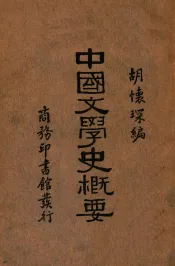 胡懷琛編
中國文學史概要
商務印書館發行